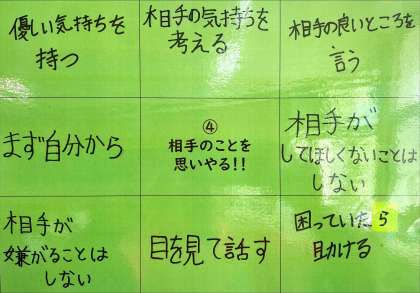 優しい気持ちを
持つ
相手の気持ちを
考える
相手の良いところを
言う
まず自分から
④
相手のことを
思いやる!!
相手が
してほしくないことは
しない
相手が
嫌がることは
しない
目を見て話す
困っていたら
助ける